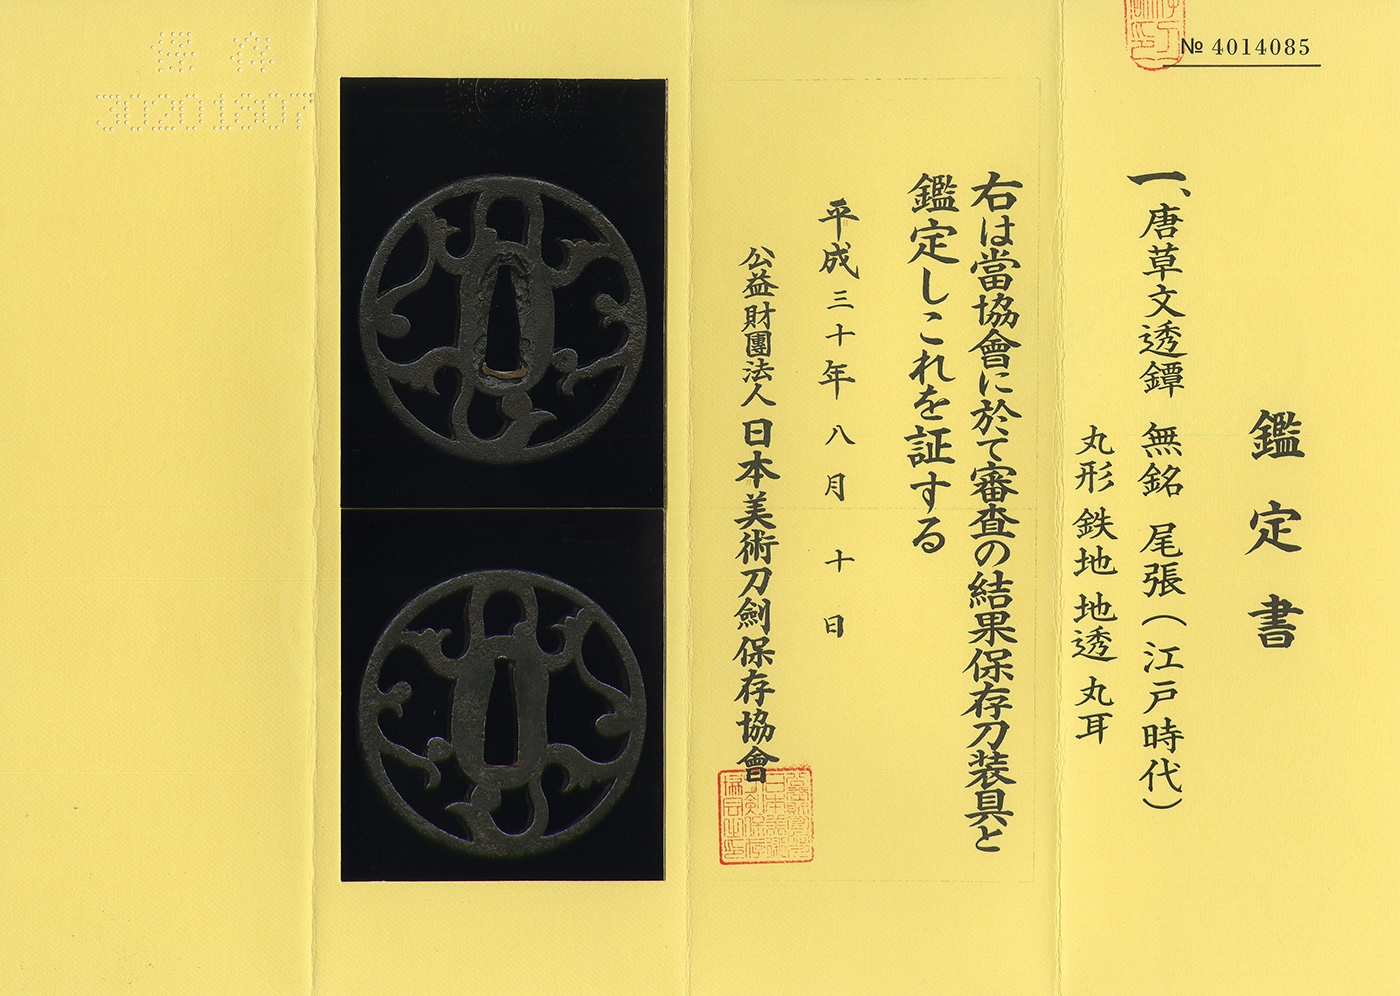 № 4014085
鑑定書
一、唐草文透鐔 無銘 尾張(江戸時代)
丸形 鉄地 地透 丸耳
右は當協會に於て審査の結果保存刀装具と
鑑定しこれを証する
平成三十年八月十日
公益財團法人 日本美術刀劍保存協會
30201807